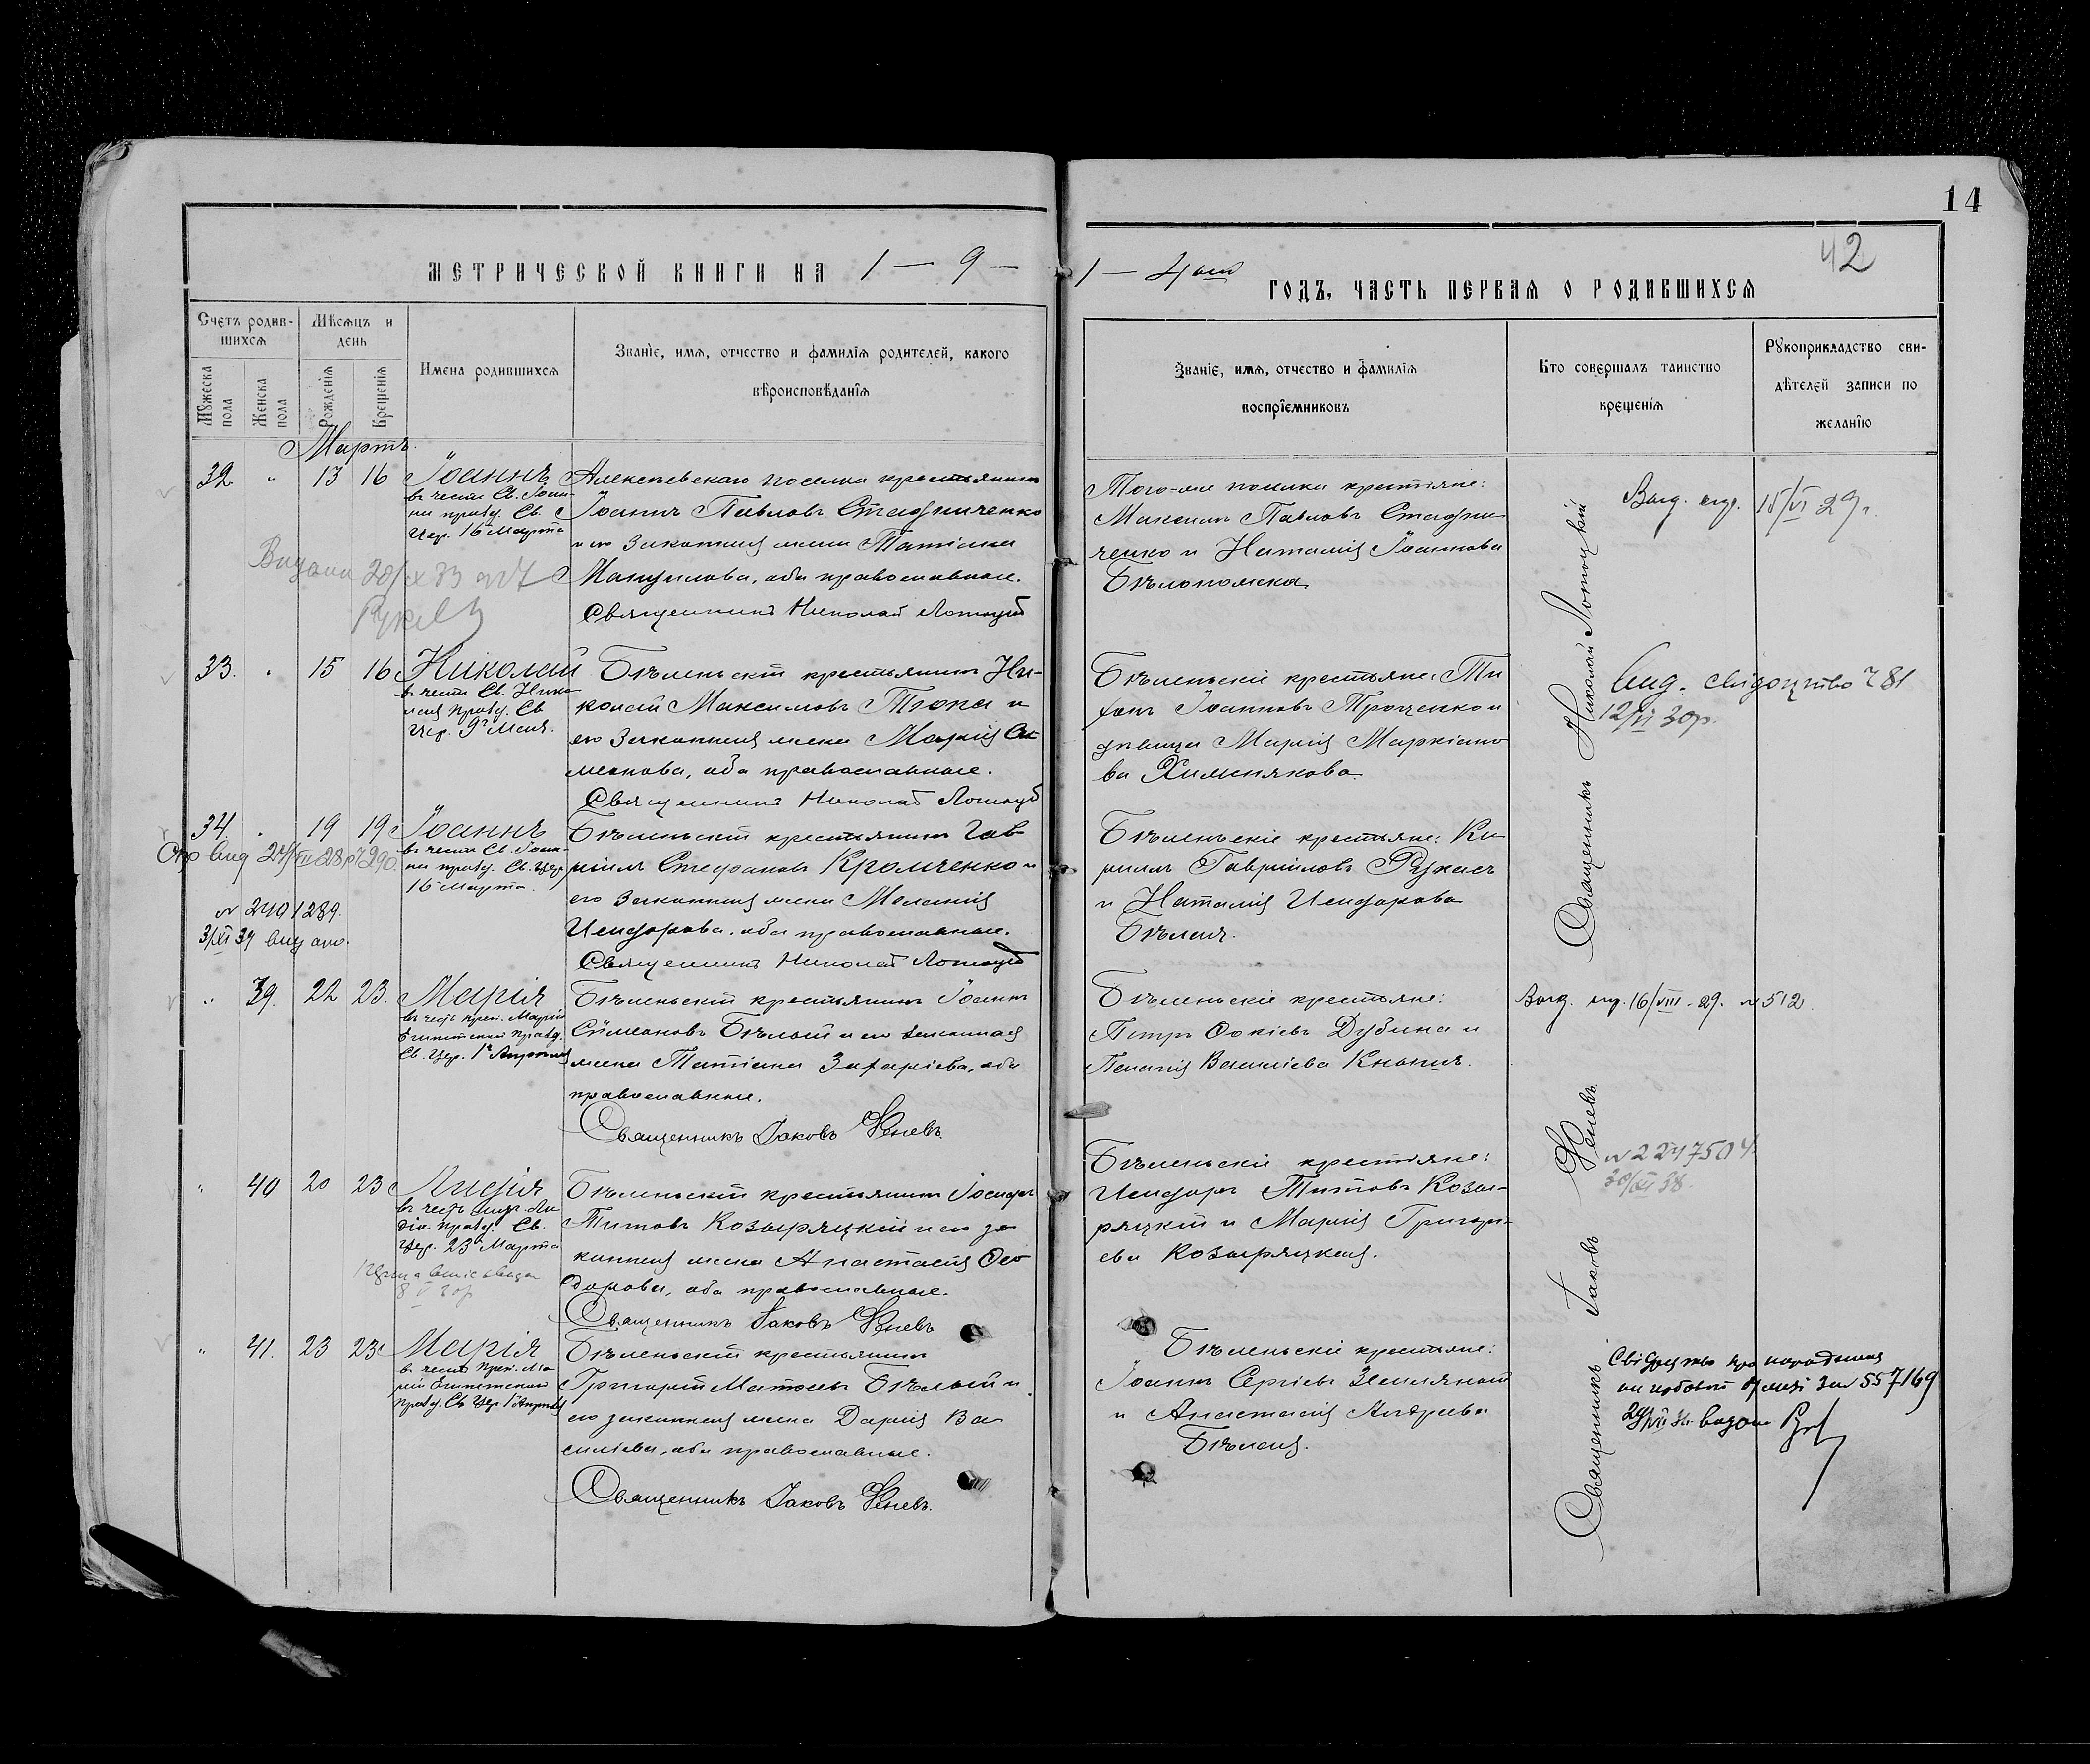 14
42
МЕТРИЧЕСКОЙ КНИГИ НА 1 — 9 —
1 — 4 ый ГОДЪ, ЧАСТЬ ПЕРВАЯ О РОДИВШИХСЯ
Счетъ родив-
шихся
Мѣсяцъ и
день
Мужеска пола
Женска пола
Рожденія
Крещенія
Имена родившихся
Званіе, имя, отчество и фамилія родителей, какого
вѣроисповѣданія
Званіе, имя, отчество и фамилія
воспріемниковъ
Кто совершалъ таинство
крещенія
Рукоприкладство сви-
дѣтелей записи по
желанію
Мартъ.
32 " 13 16 Іоаннъ
въ честь Св. Іоан-
на правд. Св.
Цер. 16 Марта
Алексѣевскаго поселка крестьянинъ
Іоаннъ Павловъ Стадниченко
и его законная жена Татіана
Мануилова, оба православные.
Священникъ Николай Лотоцкій
Того-же поселка крестьяне:
Максимъ Павловъ Стадни
ченко и Наталія Іоаннова
Бѣлоножска
15/VI 29 г.
33. " 15 16 Николай
въ честь Св. Нико
лая празд. Св.
Цер. 9 Мая.
Бѣленьскій крестьянинъ Ни-
колай Максимовъ Тюпа и
его законная жена Марія Си
меонова, оба православные.
Священникъ Николай Лотоцкій
Бѣленьскіе крестьяне: Ти
хонъ Іоанновъ Троценко и
дѣвица Марія Маркіано
ва Хименякова
Вид. свідоцтво 281
12/VI 30р.
34. " 19 19 Іоаннъ
въ честь Св. Іоан-
на празд. Св. Цер
16 Марта.
Бѣленьскій крестьянинъ Гав
ріилъ Стефановъ Кромченко и
его законная жена Меланія
Исидорова, оба православные.
Священникъ Николай Лотоцкій
Бѣленьскіе крестьяне: Ки
риллъ Гавріиловъ Рухась
и Наталія Исидорова
Бѣлая.
Священникъ Николай Лотоцкій
" 39. 22 23. Марія
въ честь преп. Маріи
Египетской празд.
Св. Цер. 1 Апрѣля
Бѣленьскій крестьянинъ Іоаннъ
Сѵмеоновъ Бѣлый и его законная
жена Татіана Захаріева, оба
православные.
Священникъ Іаковъ Феневъ.
Бѣленьскіе крестьяне:
Петръ Фокіевъ Дубина и
Пелагія Василіева Кнышъ.
16/VIII. 29. № 512.
" 40 20 23 Лидія
въ честь муч. Ли
діи празд. Св.
Цер. 23 Марта
Бѣленьскій крестьянинъ Исидоръ
Титовъ Козыряцкій и его за
конная жена Анастасія Ѳео
дорова, оба православные.
Священникъ Іаковъ Феневъ
Бѣленьскіе крестьяне:
Исидоръ Титовъ Козы-
ряцкій и Марія Григорі-
ева Козыряцкая.
" 41. 23 23 Марія
въ честь преп. Ма
ріи Египетской
празд. Св. Цер. 1 Апрѣля
Бѣленьскій крестьянинъ
Григорій Матѳеевъ Бѣлый и
его законная жена Дарія Ва
силіева, оба православные.
Священникъ Іаковъ Феневъ.
Бѣленьскіе крестьяне:
Іоаннъ Сергіевъ Земляной
и Анастасія Андреева
Бѣлая.
Священникъ Іаковъ Феневъ.